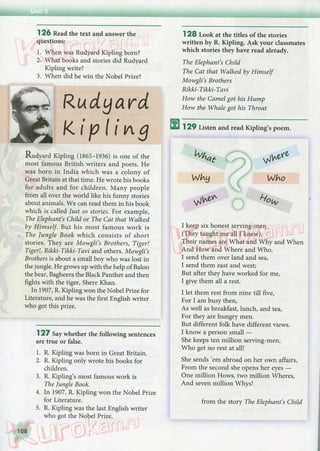 Unit 3
126 Read the text and answer the
questions:
1. When was Rudyard Kipling born?
2. What books and stories did Rudyard
Kipling write?
3. When did he win the Nobel Prize?
Rudyard
Kipling
Rudyard Kipling (1865–1936) is one of the
most famous British writers and poets. He
was born in India which was a colony of
Great Britain at that time. He wrote his books
for adults and for children. Many people
from all over the world like his funny stories
about animals. We can read them in his book
which is called Just so stories. For example,
The Elephant's Child or The Cat that Walked
by Himself. But his most famous work is
The Jungle Book which consists of short
stories. They are Mowgli's Brothers, Tiger!
Tiger!, Rikki-Tikki-Tavi and others. Mowgli's
Brothers is about a small boy who was lost in
the jungle. He grows up with the help of Baloo
the bear, Bagheera the Black Panther and then
fights with the tiger, Shere Khan.
In 1907, R. Kipling won the Nobel Prize for
Literature, and he was the first English writer
who got this prize.
127 Say whether the following sentences
are true or false.
1. R. Kipling was born in Great Britain.
2. R. Kipling only wrote his books for
children.
3. R. Kipling's most famous work is
The Jungle Book.
4. In 1907, R. Kipling won the Nobel Prize
for Literature.
5. R. Kipling was the last English writer
who got the Nobel Prize.
108
128 Look at the titles of the stories
written by R. Kipling. Ask your classmates
which stories they have read already.
The Elephant's Child
The Cat that Walked by Himself
Mowgli's Brothers
Rikki-Tikki-Tavi
How the Camel got his Hump
How the Whale got his Throat
129 Listen and read Kipling's poem.
What
Where
Why
Who
When
How
I keep six honest serving-men
(They taught me all I knew);
Their names are What and Why and When
And How and Where and Who.
I send them over land and sea,
I send them east and west;
But after they have worked for me,
I give them all a rest.
I let them rest from nine till five,
For I am busy then,
As well as breakfast, lunch, and tea,
For they are hungry men.
But different folk have different views.
I know a person small —
She keeps ten million serving-men,
Who get no rest at all!
She sends 'em abroad on her own affairs,
From the second she opens her eyes —
One million Hows, two million Wheres,
And seven million Whys!
from the story The Elephant's Child
kurokam.ru